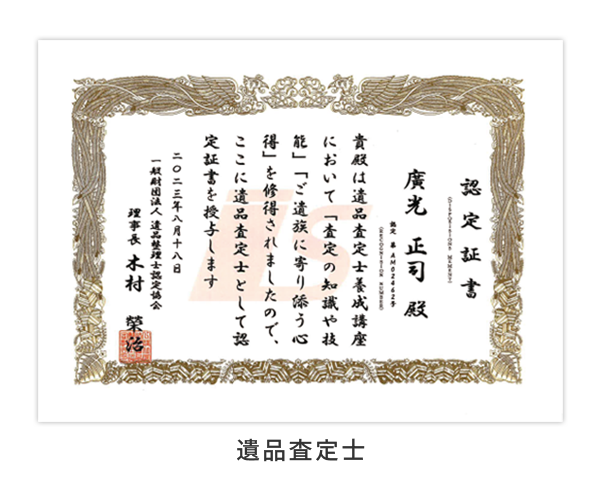 認定証書
(DISPOSITIONS MEMENT)
廣光 正司 殿
認定 第 AM02462号
(RECOGNITION NUMBER)
貴殿は遺品査定士養成講座
において「査定の知識や技
能」「ご遺族に寄り添う心
得」を修得されましたので、
ここに遺品査定士として認
定証書を授与します
二〇二三年八月十八日
一般財団法人 遺品整理士認定協会
理事長 木村 榮治
iis
遺品査定士